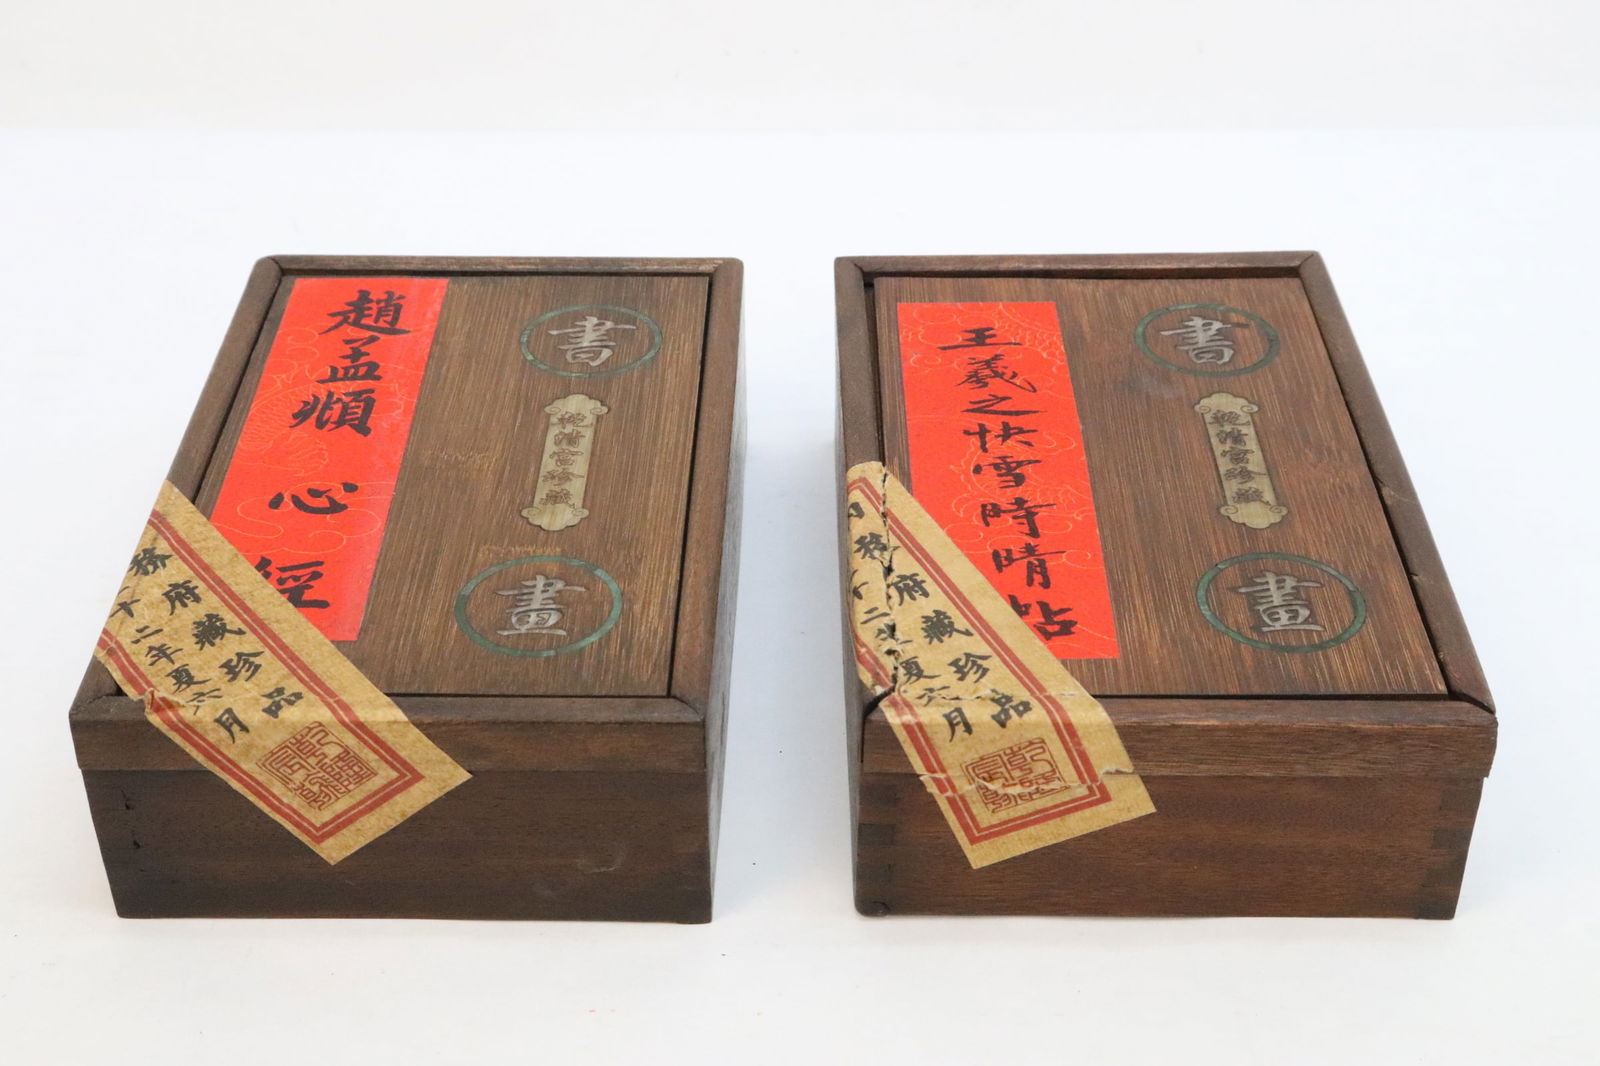 趙孟頫
心
經
書
乾清宮珍藏
畫
務府藏珍品
十二年夏六月
王羲之快雪時晴帖
書
乾清宮珍藏
畫
內務府藏珍品
十二年夏六月